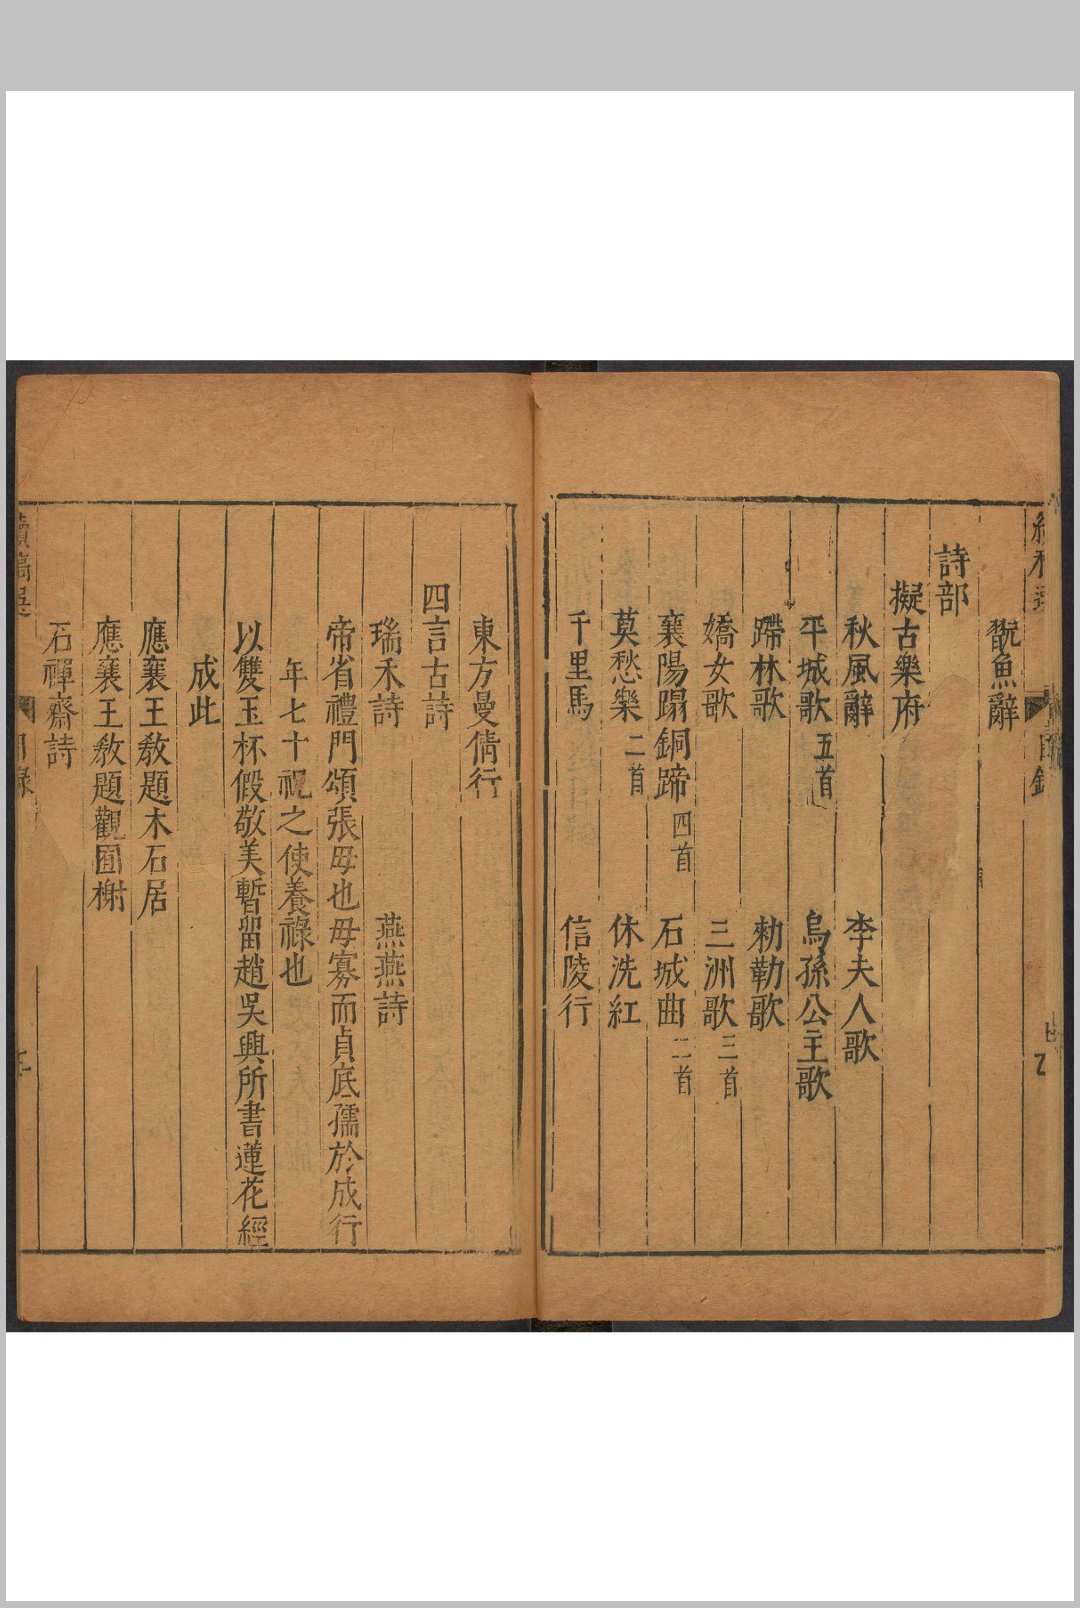 翫魚辭
詩部
擬古樂府
秋風辭 李夫人歌
平城歌五首 烏孫公主歌
蹛林歌 勑勒歌
嬌女歌 三洲歌三首
襄陽蹋銅蹄四首 石城曲二首
莫愁樂二首 休洗紅
千里馬 信陵行
東方曼倩行
四言古詩
瑞禾詩 燕燕詩
帝省禮門頌張母也母寡而貞底孺於成行
年七十祝之使養祿也
以雙玉杯假敬美暫留趙吳興所書蓮花經
成此
應襄王教題木石居
應襄王教題觀囿榭
石禪齋詩